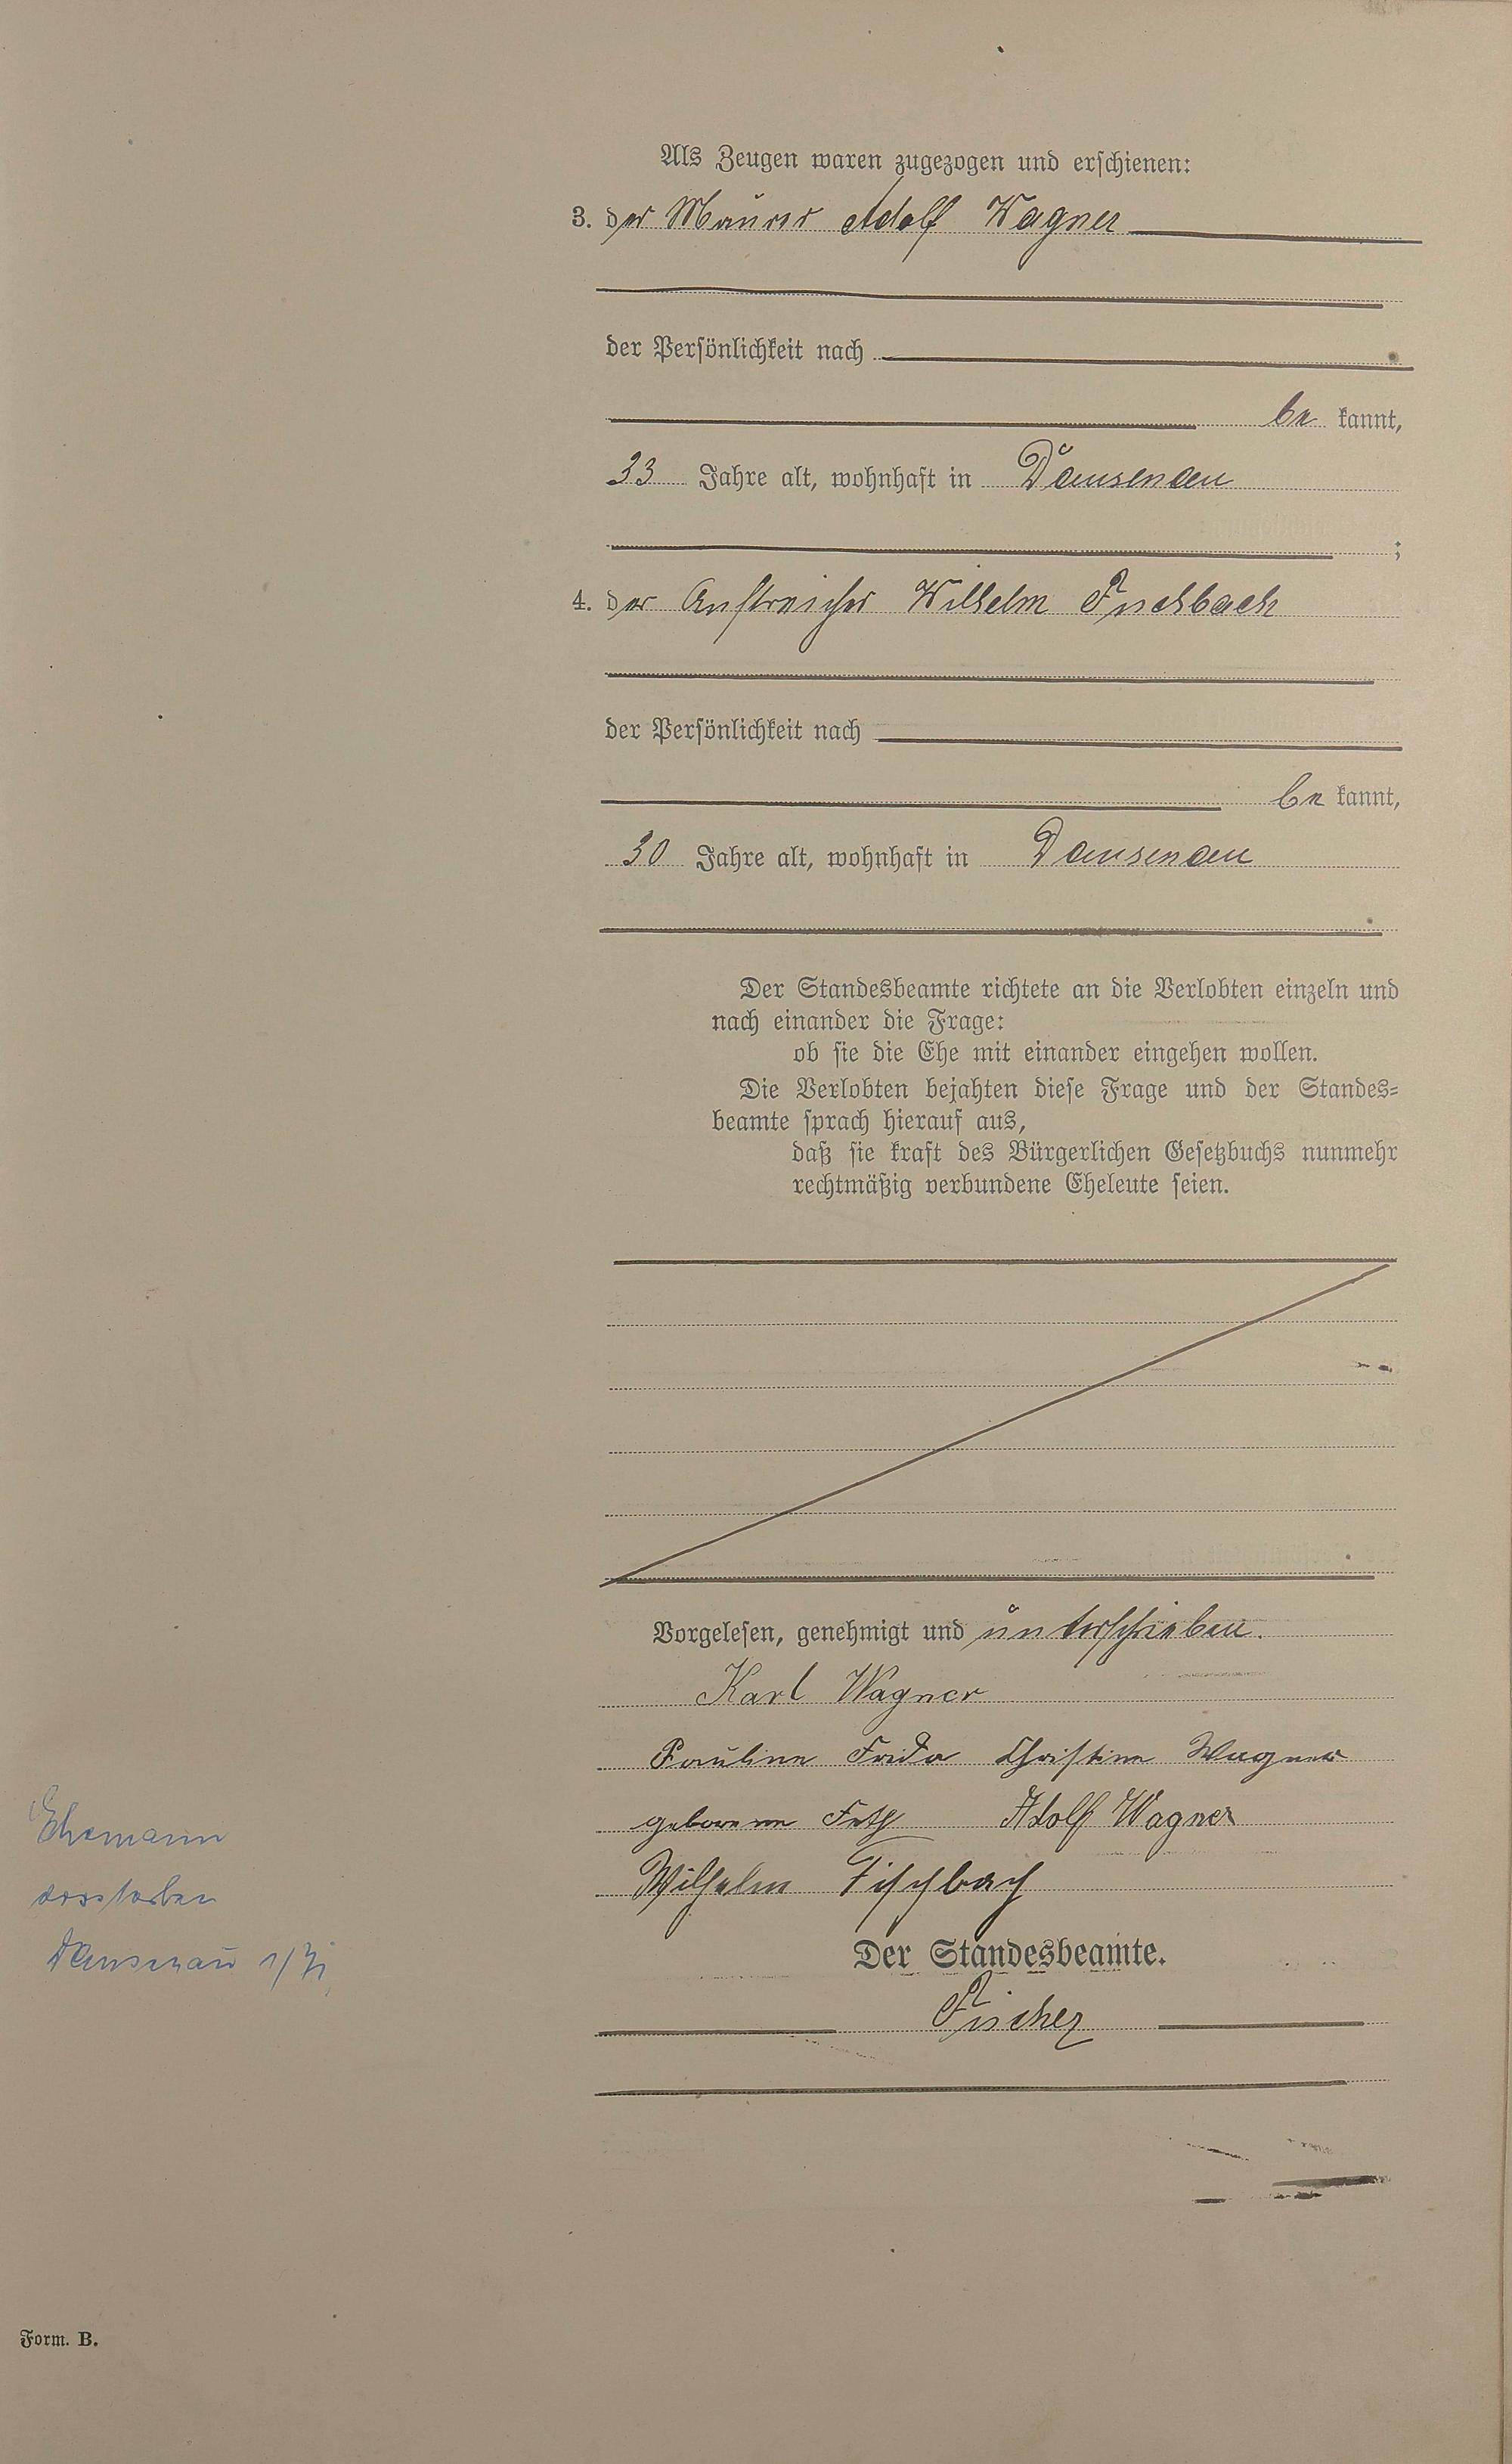 Als Zeugen waren zugezogen und erschienen:
3. der Maurer Adolf Wagner
der Persönlichkeit nach
be kannt,
33 Jahre alt, wohnhaft in Dausenau
;
4. der Anstreicher Wilhelm Fischbach
der Persönlichkeit nach
be kannt,
30 Jahre alt, wohnhaft in Dausenau
Der Standesbeamte richtete an die Verlobten einzeln und
nach einander die Frage:
ob sie die Ehe mit einander eingehen wollen.
Die Verlobten bejahten diese Frage und der Standes=
beamte sprach hierauf aus,
daß sie kraft des Bürgerlichen Gesetzbuchs nunmehr
rechtmäßig verbundene Eheleute seien.
Vorgelesen, genehmigt und unterschrieben.
Karl Wagner
Pauline Frida Christine Wagner
geborene Adolf Wagner
Wilhelm Fischbach
Ehemann
verstorben
Dausenau
Der Standesbeamte.
Fischer
Form. B.